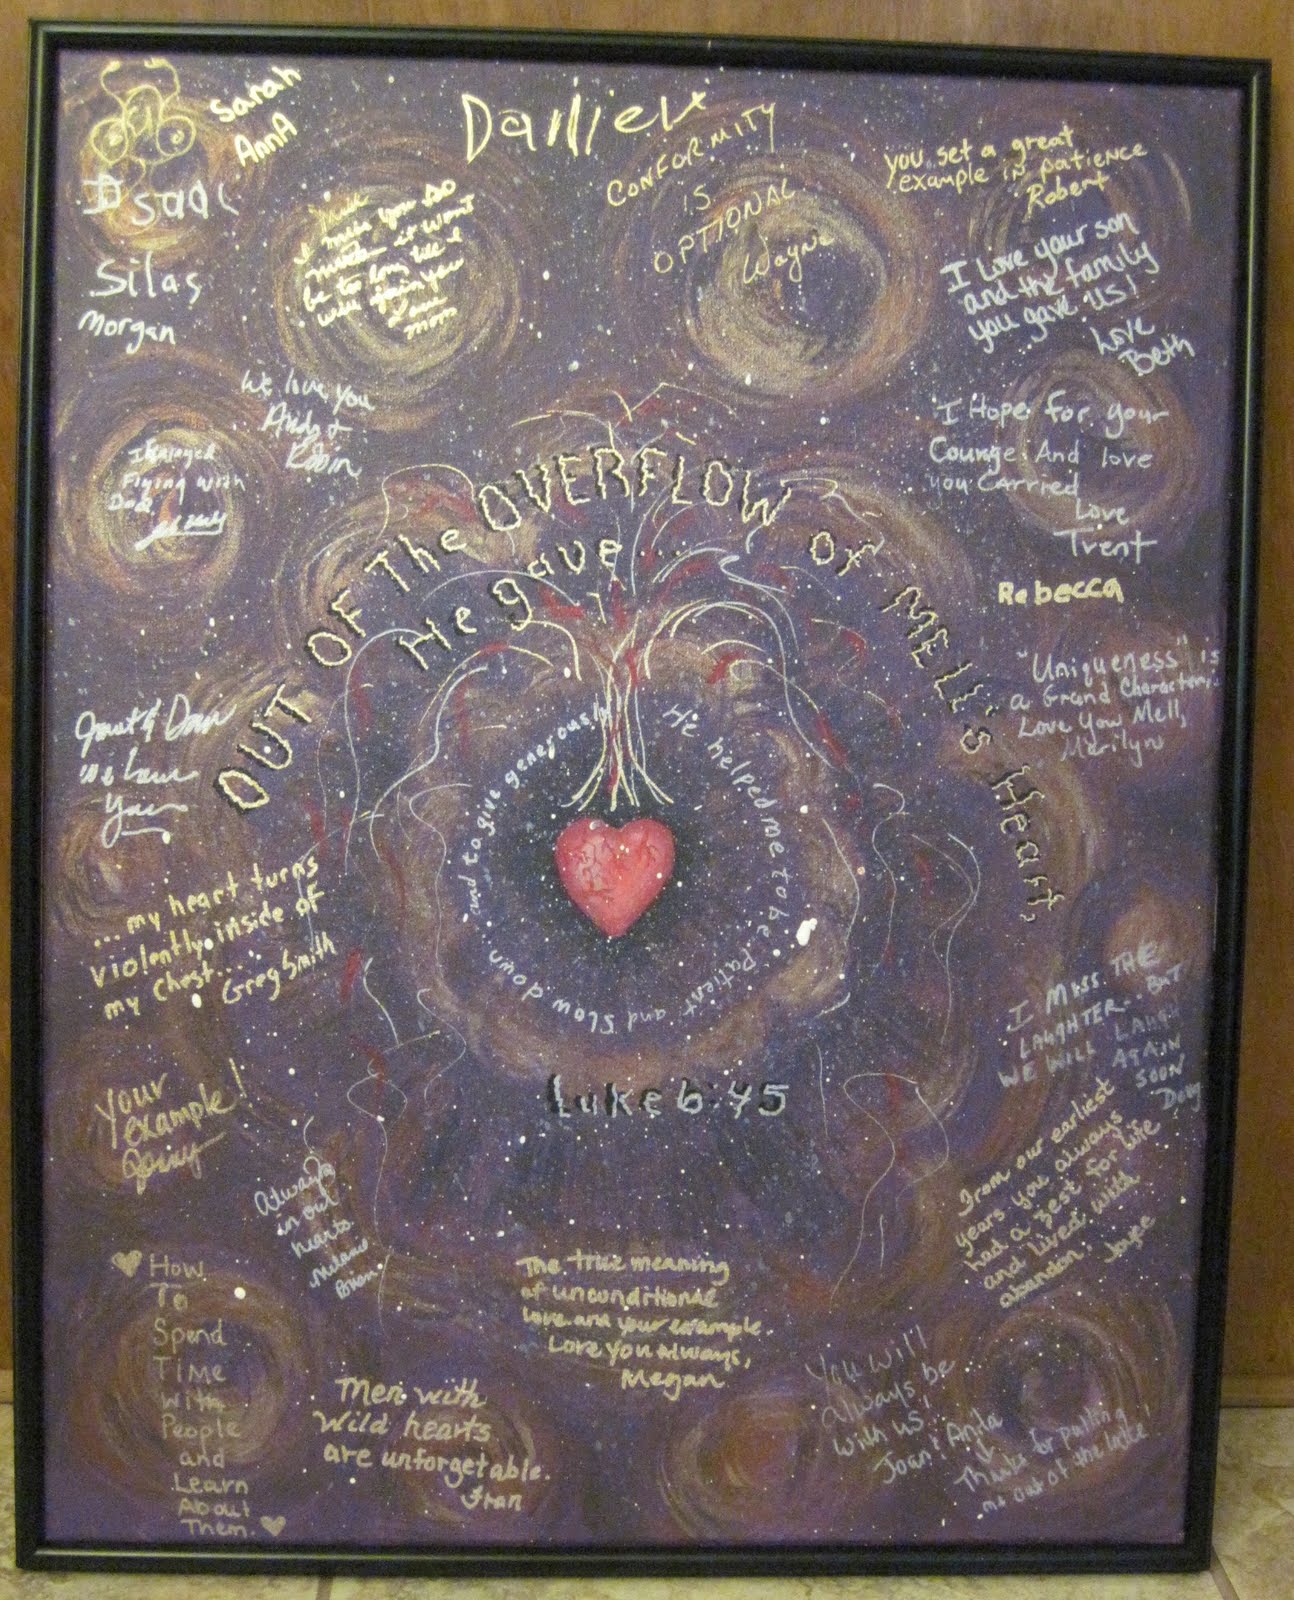 Sarah
AnnA
Isaac
Silas
Morgan
Daniel
CONFORMITY
IS
OPTIONAL
Wayne
You set a great
example in patience
Robert
I miss you so
much it wont
be too long till I
will again you
Love
mom
I Love your son
and the family
you gave us!
Love
Beth
We love you
Andy &
Robin
I Hope for your
Courage And love
you carried
Love
Trent
I Enjoyed
Flying with
Dad
Rebecca
OUT OF The OVERFLOW OF MELL'S Heart,
He gave...
"Uniqueness" is
a Grand Character,
Love You Mell,
Marilyn
Janet & Dan
We Love
You
He helped me to be Patient and Slow down
and to give generously
...my heart turns
violently inside of
my chest...
Greg Smith
I MISS THE
LAUGHTER... BUT
WE WILL LAUGH
AGAIN
SOON
Doug
Luke 6:45
Your
example!
From our earliest
years you always
had a zest for life
and lived with
abandon.
Joyce
Always
in our
hearts
Melanie
Brian
How
To
Spend
Time
With
People
and
Learn
About
Them.
The true meaning
of unconditional
love and your example.
Love You Always,
Megan
Men with
Wild hearts
are unforgetable.
Fran
You will
always be
with us,
Joan & Anita
Thanks for pulling
me out of the lake!